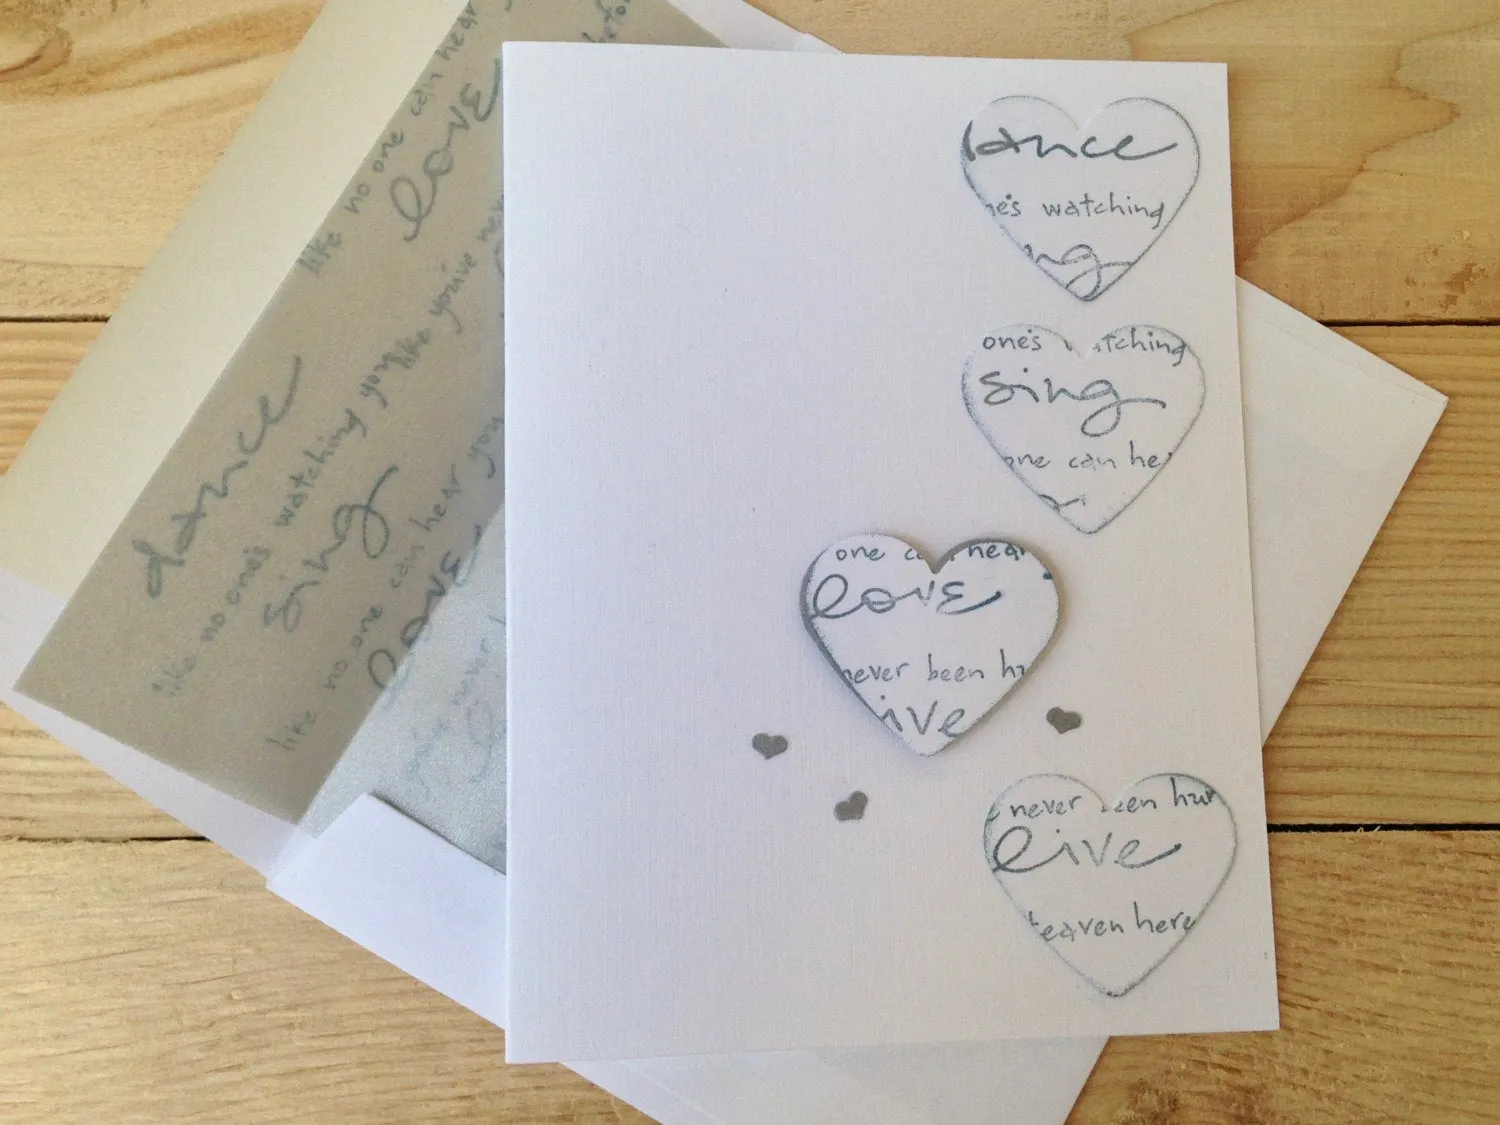 dance
like no one's watching
sing
like no one can hear you
love
like you've never
like no one can hear
love
ance
ne's watching
ng
one's tching
sing
one can he
one c n hear
love
never been hu
ive
never een hur
live
eaven here